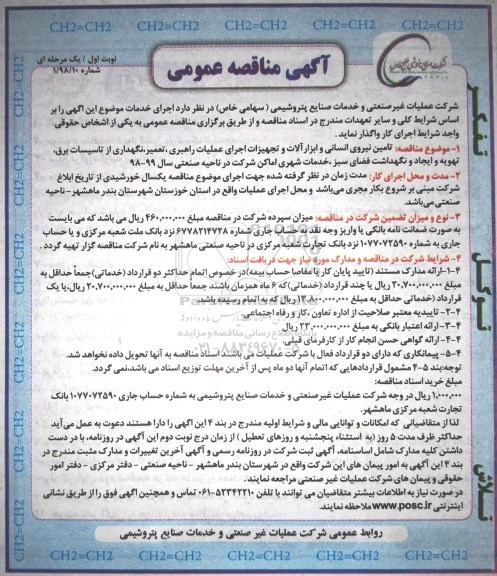 آگهی مناقصه عمومی
نوبت اول / یک مرحله ای
شماره ۱/۹۸/۱۰
شرکت عملیات غیرصنعتی و خدمات صنایع پتروشیمی ( سهامی خاص) در نظر دارد اجرای خدمات موضوع این آگهی را بر
اساس شرایط کلی و سایر تعهدات مندرج در اسناد مناقصه و از طریق برگزاری مناقصه عمومی به یکی از اشخاص حقوقی
واجد شرایط اجرای کار واگذار نماید.
۱-موضوع مناقصه: تامین نیروی انسانی و ابزارآلات و تجهیزات اجرای عملیات راهبری ،تعمیر،نگهداری از تاسیسات برق،
تهویه و ایجاد و نگهداشت فضای سبز ،خدمات شهری اماکن شرکت در ناحیه صنعتی سال ۹۹-۹۸
۲- مدت و محل اجرای کار: مدت زمان در نظر گرفته شده جهت اجرای موضوع مناقصه یکسال خورشیدی از تاریخ ابلاغ
شرکت مبنی بر شروع بکار مجری می‌باشد و محل اجرای عملیات واقع در استان خوزستان شهرستان بندر ماهشهر -ناحیه
صنعتی می‌باشد.
۳- نوع و میزان تضمین شرکت در مناقصه: میزان سپرده شرکت در مناقصه مبلغ ۴۶۰,۰۰۰,۰۰۰ ریال می باشد که می بایست
به صورت ضمانت نامه بانکی یا واریز وجه نقد به حساب جاری شماره ۶۷۷۸۲۱۴۷۲۸ نزد بانک ملت شعبه مرکزی و یا حساب
جاری به شماره ۱۰۷۷۰۷۲۵۹۰ نزد بانک تجارت شعبه مرکزی در ناحیه صنعتی ماهشهر به نام شرکت مناقصه گزار تهیه گردد .
۴- شرایط شرکت در مناقصه و مدارک مورد نیاز جهت دریافت اسناد:
۱-۴-ارائه مدارک مستند (تایید پایان کار یا مفاصا حساب بیمه)در خصوص اتمام حداکثر دو قرارداد (خدماتی)جمعاً حداقل به
مبلغ ۲۰,۷۰۰,۰۰۰,۰۰۰ ریال یا چند قرارداد (خدماتی)که ۶ ماه همزمان باشند جمعاً حداقل به مبلغ ۲۰,۷۰۰,۰۰۰,۰۰۰ ریال،یا یک
قرارداد (خدماتی حداقل به مبلغ ۱۳,۸۰۰,۰۰۰,۰۰۰ ریال که به اتمام رسیده باشد.
۲-۴- تاییدیه معتبر صلاحیت از اداره تعاون ،کار و رفاه اجتماعی.
۳-۴- ارائه اعتبار بانکی به مبلغ ۲۳,۰۰۰,۰۰۰,۰۰۰ ریال
۴-۴- ارائه گواهی حسن انجام کار از کارفرمای قبلی.
۵-۴- پیمانکاری که دارای دو قرارداد فعال با شرکت عملیات می باشند اسناد مناقصه به آنها تحویل داده نخواهد شد.
توجه:بند ۵-۴ مشمول قراردادهایی که اتمام آنها دو ماه پس از آخرین مهلت توزیع اسناد می باشد،نمی گردد.
مبلغ خرید اسناد مناقصه:
۱,۰۰۰,۰۰۰ ریال در وجه شرکت عملیات غیرصنعتی و خدمات صنایع پتروشیمی به شماره حساب جاری ۱۰۷۷۰۷۲۵۹۰ بانک
تجارت شعبه مرکزی ماهشهر.
لذا از متقاضیانی که امکانات و توانایی مالی و شرایط اولیه مندرج در بند ۴ این آگهی را دارا هستند دعوت به عمل می‌آید
حداکثر ظرف مدت ۵ روز (به استثناء پنجشنبه و روزهای تعطیل ) از زمان درج نوبت دوم این آگهی در روزنامه، با در دست
داشتن کلیه مدارک شامل اساسنامه، آگهی ثبت شرکت در روزنامه رسمی و آگهی آخرین تغییرات و مدارک مثبت مندرج در
بند ۴ این آگهی به امور پیمان های این شرکت واقع در شهرستان بندر ماهشهر - ناحیه صنعتی - دفتر مرکزی - دفتر امور
حقوقی و پیمان های شرکت عملیات غیر صنعتی مراجعه نمایند.
در صورت نیاز به اطلاعات بیشتر متقاضیان می توانند با تلفن ۵۲۳۴۲۲۱۰-۰۶۱ تماس و همچنین آگهی فوق را از طریق نشانی
اینترنتی www.posc.ir ملاحظه نمایند.
روابط عمومی شرکت عملیات غیر صنعتی و خدمات صنایع پتروشیمی
تفکر
توکل
تلاش
CH2=CH2 CH2=CH2 CH2=CH2 CH2=CH2 CH2=CH2